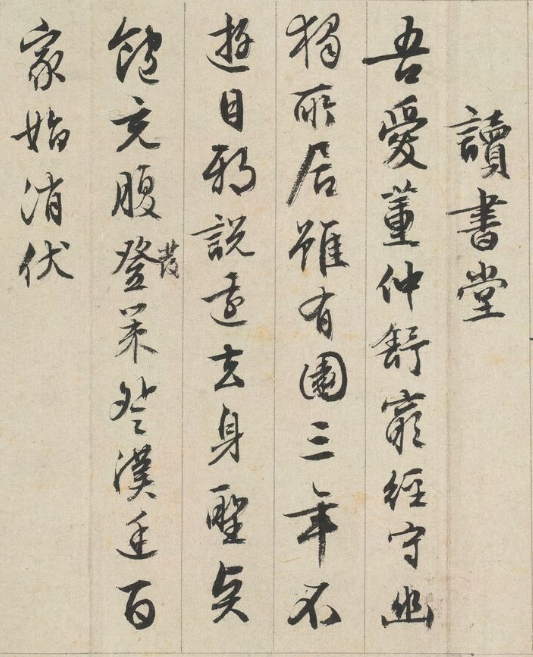 讀書堂
吾愛董仲舒窮經守幽
獨所居雖有園三年不
遊目邪說遠去身聖
飽充腹登策登漢廷百
發
家始消伏